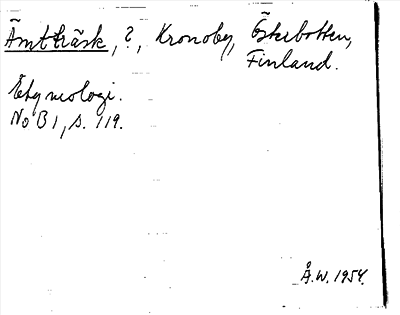 Ämtträsk, ?, Kronoby, Österbotten,
Finland.
Etymologi.
No B 1, s. 119.
Å.W. 1954.